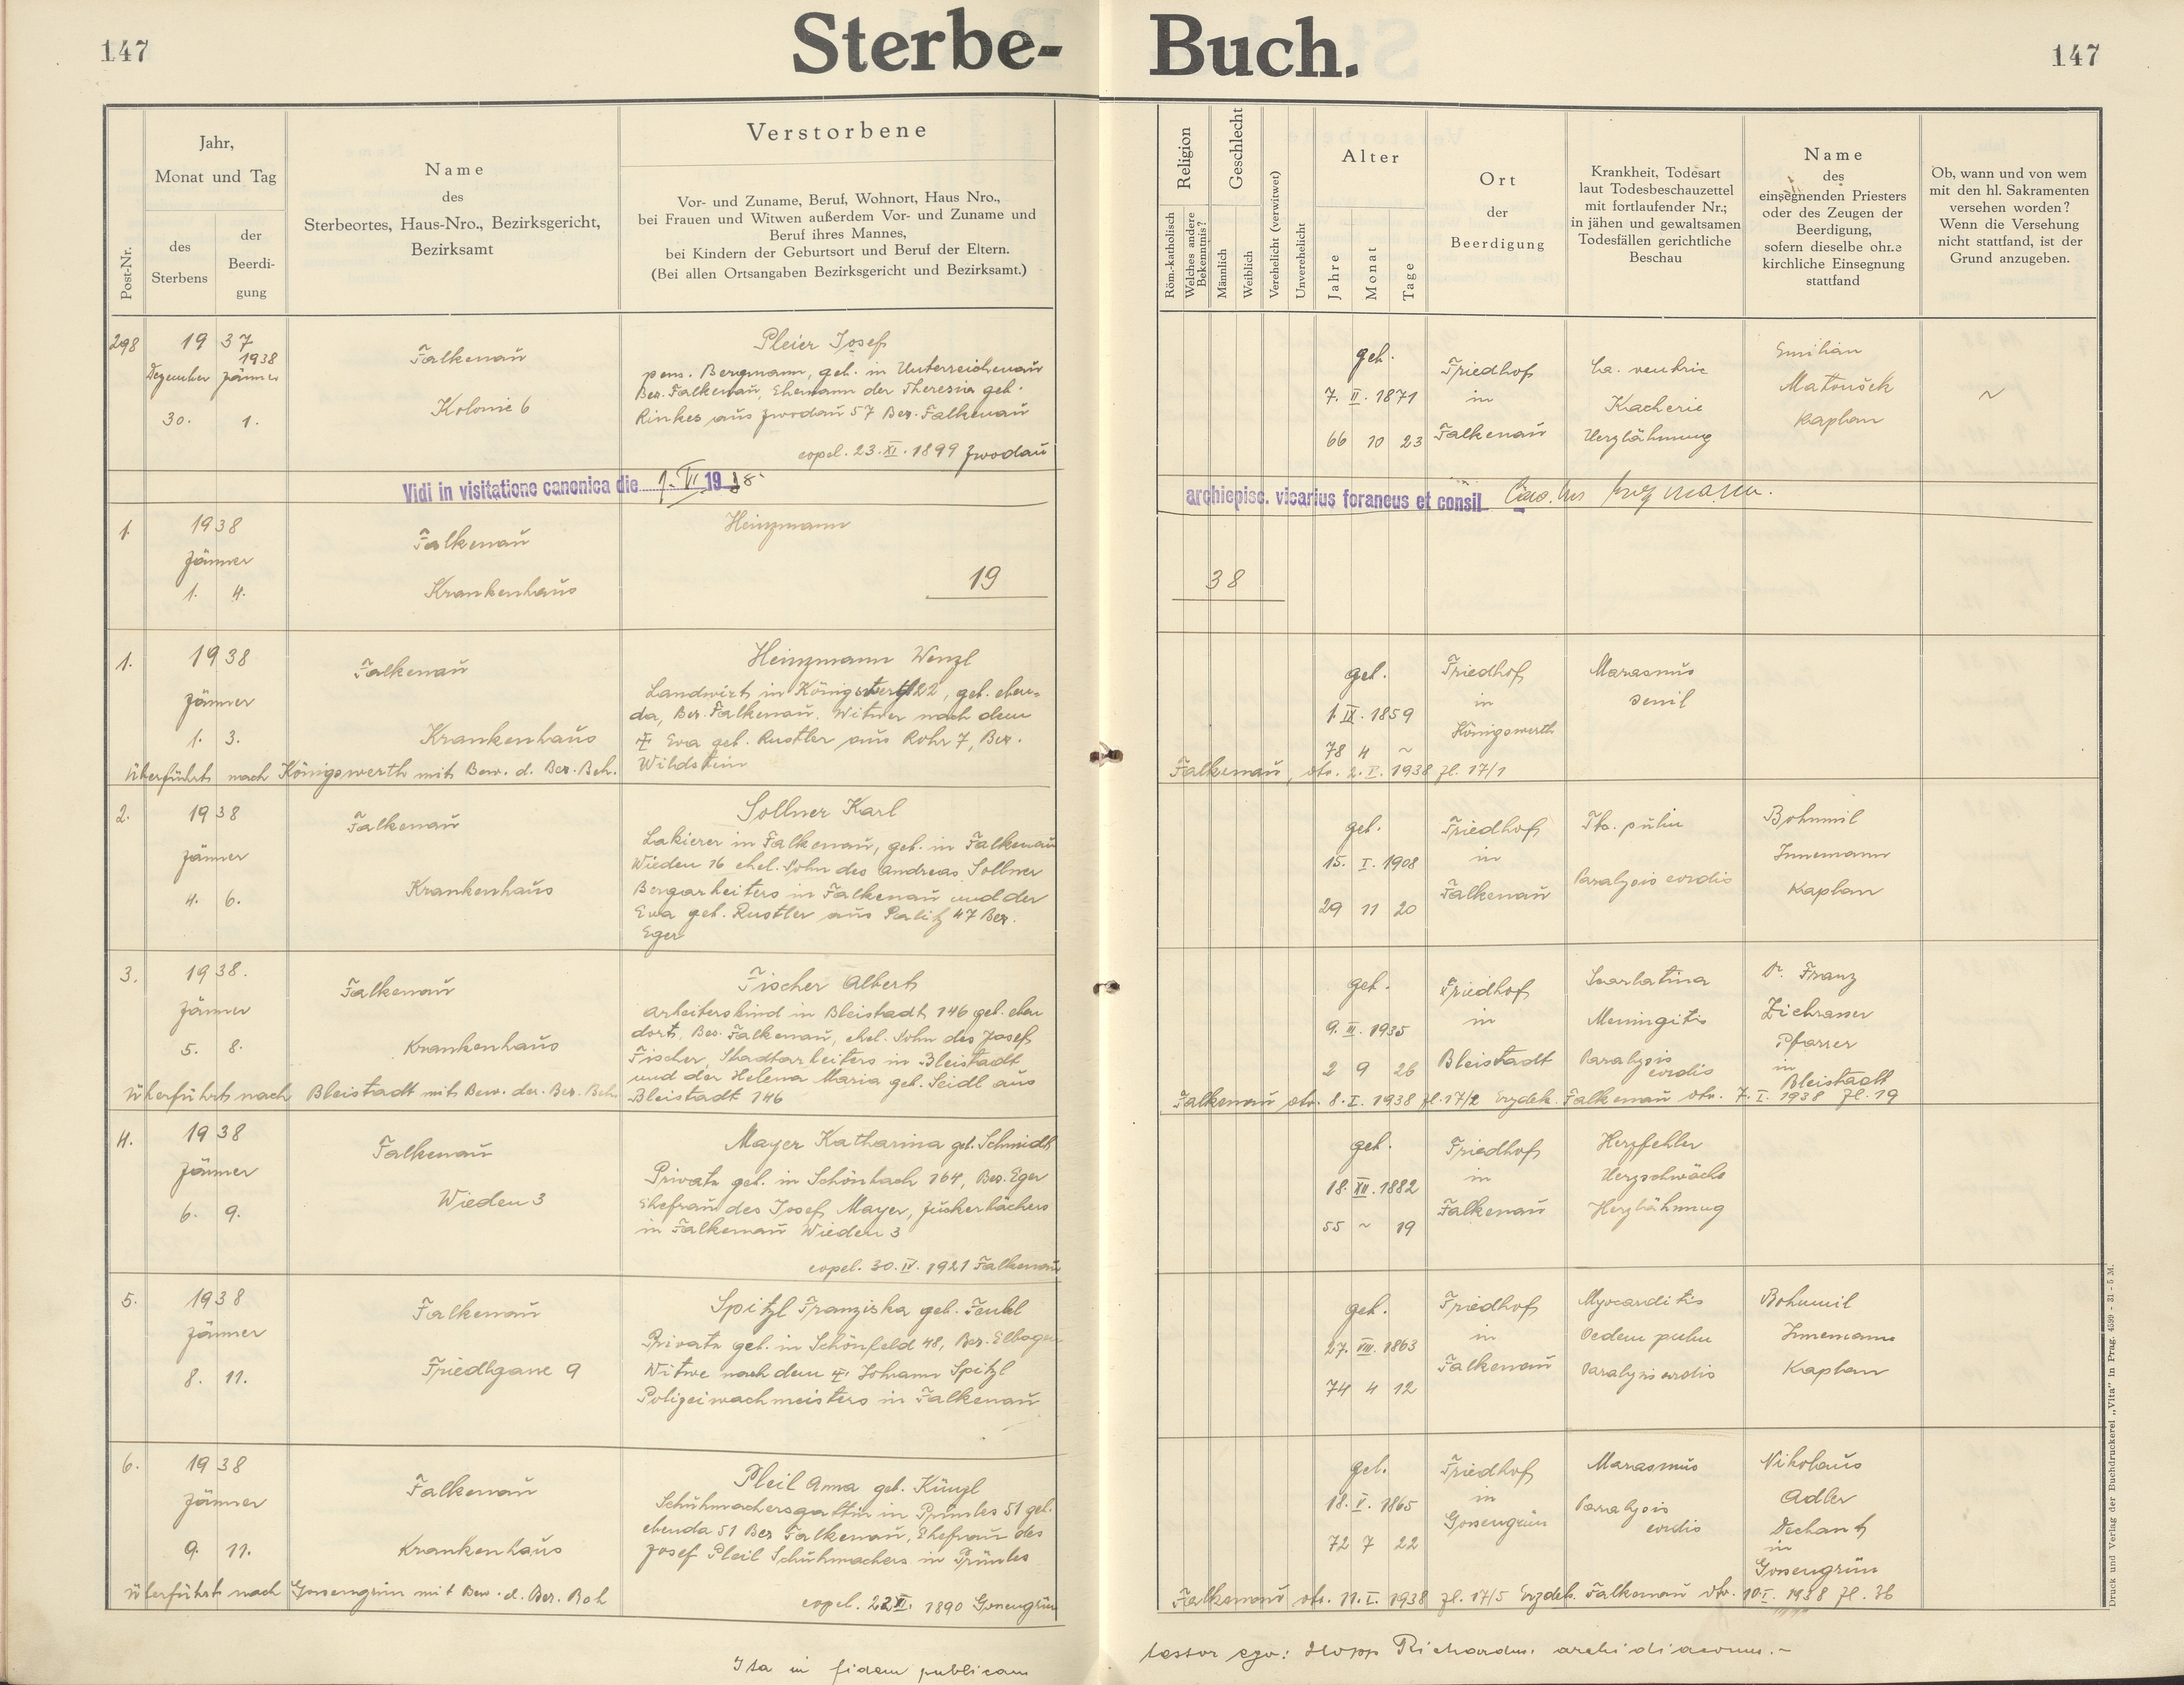 147
Sterbe- Buch.
147
Post-Nr.
Jahr,
Monat und Tag
des
Sterbens
der
Beerdi-
gung
Name
des
Sterbeortes, Haus-Nro., Bezirksgericht,
Bezirksamt
Verstorbene
Vor- und Zuname, Beruf, Wohnort, Haus Nro.,
bei Frauen und Witwen außerdem Vor- und Zuname und
Beruf ihres Mannes,
bei Kindern der Geburtsort und Beruf der Eltern.
(Bei allen Ortsangaben Bezirksgericht und Bezirksamt.)
Religion
Röm.-katholisch
Welches andere
Bekenntnis?
Geschlecht
Männlich
Weiblich
Verehelicht (verwitwet)
Unverehelicht
Alter
Jahre
Monat
Tage
Ort
der
Beerdigung
Krankheit, Todesart
laut Todesbeschauzettel
mit fortlaufender Nr.;
in jähen und gewaltsamen
Todesfällen gerichtliche
Beschau
Name
des
einsegnenden Priesters
oder des Zeugen der
Beerdigung,
sofern dieselbe ohne
kirchliche Einsegnung
stattfand
Ob, wann und von wem
mit den hl. Sakramenten
versehen worden?
Wenn die Versehung
nicht stattfand, ist der
Grund anzugeben.
298
19 37
1938
Dezember Jänner
30. 1.
Falkenau
Kolonie 6
Pleier Josef
pens. Bergmann, geb. in Unterreichenau
Bez. Falkenau, Ehemann der Theresia geb.
Rinkes aus Zwodau 57 Bez. Falkenau
copul. 23. XI. 1899 Zwodau
geb.
7. II. 1871
66 10 23
Friedhof
in
Falkenau
Ca. ventric
Kacherie
Herzlähmung
Emilian
Matoušek
Kaplan
~
Vidi in visitatione canonica die 1. VI. 1938
archiepisc. vicarius foraneus et consil.
1.
1938
Jänner
1. 4.
Falkenau
Krankenhaus
Heinzmann
19
38
1.
1938
Jänner
1. 3.
Falkenau
Krankenhaus
Heinzmann Wenzl
Landwirt in Königswerth 22, geb. eben-
da, Bez. Falkenau. Witwer nach dem
Eva geb. Rustler aus Rohr 7, Bez.
Wildstein
Überführt nach Königswerth mit Bew. d. Bez. Beh.
geb.
1. IX. 1859
78 4 ~
Friedhof
in
Königswerth
Marasmus
senil
Falkenau, dto. 2. I. 1938 Zl. 17/1
2.
1938
Jänner
4. 6.
Falkenau
Krankenhaus
Sollner Karl
Lakierer in Falkenau, geb. in Falkenau
Wieden 16 ehel. Sohn des Andreas Sollner
Bergarbeiters in Falkenau und der
Eva geb. Rustler aus Palitz 47 Bez.
Eger
geb.
15. I. 1908
29 11 20
Friedhof
in
Falkenau
Tbc. pulm
Paralysis cordis
Bohumil
Innemann
Kaplan
3.
1938.
Jänner
5. 8.
Falkenau
Krankenhaus
Fischer Albert
Arbeiterskind in Bleistadt 146 geb. eben
dort, Bez. Falkenau, ehel. Sohn des Josef
Fischer, Stadtarbeiters in Bleistadt
und der Helena Maria geb. Seidl aus
Bleistadt 146
Überführt nach Bleistadt mit Bew. der. Bez. Beh.
geb.
9. III. 1935
2 9 26
Friedhof
in
Bleistadt
Scarlatina
Meningitis
Paralysis
cordis
P. Franz
Pfarrer
in
Bleistadt
Falkenau dto. 8. I. 1938 Zl. 17/2 Erzdek. Falkenau dto. 7. I. 1938 Zl. 19
4.
1938
Jänner
6. 9.
Falkenau
Wieden 3
Mayer Katharina geb. Schmidt
Private geb. in Schönbach 164, Bez. Eger
Ehefrau des Josef Mayer, Zuckerbäckers
in Falkenau Wieden 3
copul. 30. IV. 1921 Falkenau
geb.
18. XII. 1882
55 ~ 19
Friedhof
in
Falkenau
Herzfehler
Herzschwäche
Herzlähmung
5.
1938
Jänner
8. 11.
Falkenau
Friedlgasse 9
Spitzl Franziska geb. Teubl
Private geb. in Schönfeld 48, Bez. Elbogen
Witwe nach dem Johann Spitzl
Polizeiwachmeisters in Falkenau
geb.
27. VIII. 1863
74 4 12
Friedhof
in
Falkenau
Myocarditis
Oedem pulm
Paralysis cordis
Bohumil
Innemann
Kaplan
6.
1938
Jänner
9. 11.
Falkenau
Krankenhaus
Pleil Anna geb. Künzl
Schuhmachersgattin in Prünles 51 geb.
ebenda 51 Bez Falkenau, Ehefrau des
Josef Pleil Schuhmachers in Prünles
copul. 22 XI. 1890 Gossengrün
Überführt nach Gossengrün mit Bew. d. Bez. Beh
geb.
18. V. 1865
72 7 22
Friedhof
in
Gossengrün
Marasmus
Paralysis
cordis
Nikolaus
Adler
Dechant
in
Gossengrün
Falkenau dto. 11. I. 1938 Zl. 17/5 Erzdek. Falkenau dto. 10. I. 1938 Zl. 36
Ita in fidem publicam
testor ego: Hopp Richardus archidiaconus.-
Druck und Verlag der Buchdruckerei „Vita" in Prag. 4599 - 31 - 5 M.